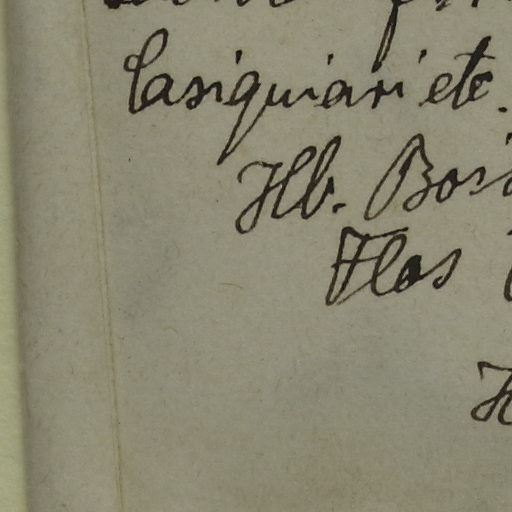 Casiquiari etc.
Hb. Bois
Flos
H